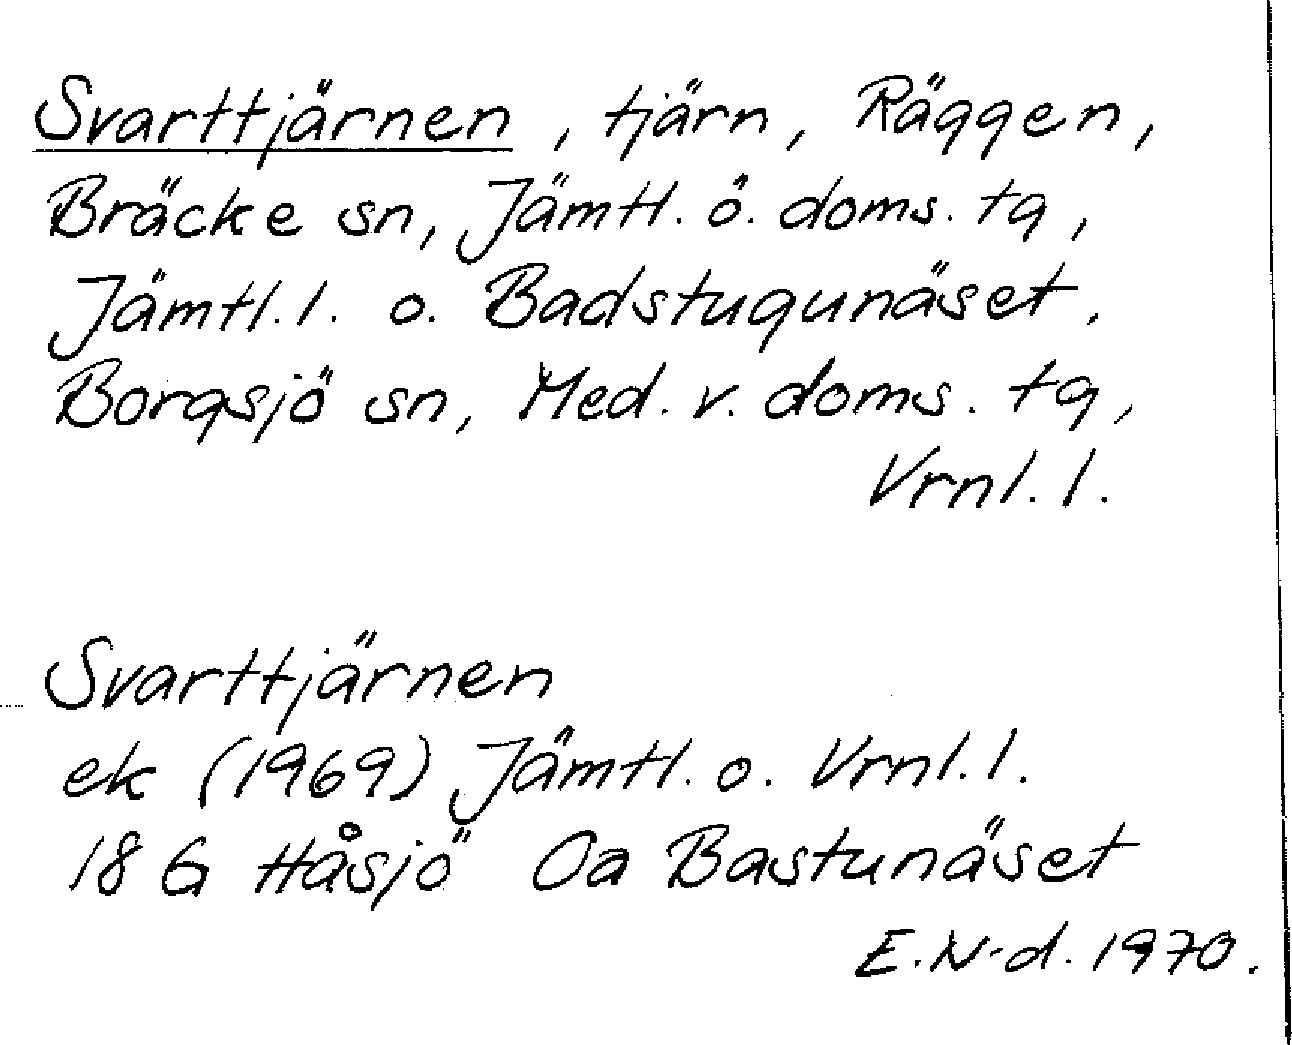 Svarttjärnen, tjärn, Räggen,
Bräcke sn, Jämtl. ö. doms. tg,
Jämtl. l. o. Badstugunäset,
Borgsjö sn, Med. v. doms. tg,
Vrnl. l.
Svarttjärnen
ek (1969) Jämtl. o. Vrnl. l.
18 G Håsjö 0a Bastunäset
E.N-d. 1970.